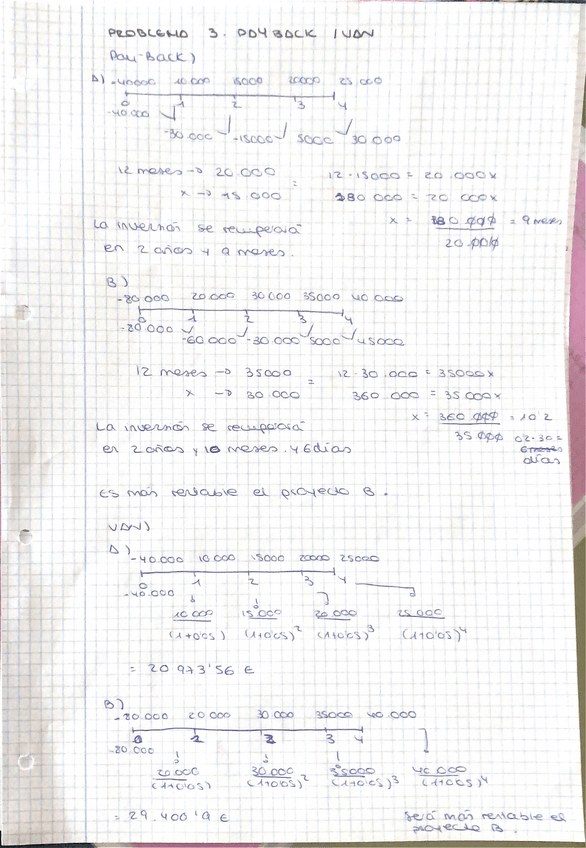 PROBLEMA 3. PAYBACK / VAN
Pay-Back)
A) -40000 10 000 15000 20000 25 000
0 1 2 3 4
-40.000 -30 000 -15000 5000 30 000
12 meses -> 20 000 = 12 · 15000 = 20 000x
x -> 15 000 180 000 = 20 000x
x = 180 000 / 20 000 = 9 meses
La inversión se recuperará
en 2 años y 9 meses.
B)
-80.000 20.000 30 000 35000 40 000
0 1 2 3 4
-80.000 -60 000 -30 000 5000 45000
12 meses -> 35000 = 12 · 30 000 = 35000x
x -> 30 000 360 000 = 35 000x
x = 360 000 / 35 000 = 10'2
La inversión se recuperará
en 2 años y 10 meses y 6 días
02·30 =
días
Es más rentable el proyecto B.
VAN)
A) -40.000 10 000 15000 20000 25000
0 1 2 3 4
-40.000
10 000 / (1+0'05) 15 000 / (1+0'05)² 20 000 / (1+0'05)³ 25 000 / (1+0'05)⁴
= 20 973'56 €
B)
-80.000 20 000 30 000 35000 40.000
0 1 2 3 4
-80.000
20.000 / (1+0'05) 30 000 / (1+0'05)² 35000 / (1+0'05)³ 40 000 / (1+0'05)⁴
= 29.400'9 €
Será más rentable el
proyecto B.